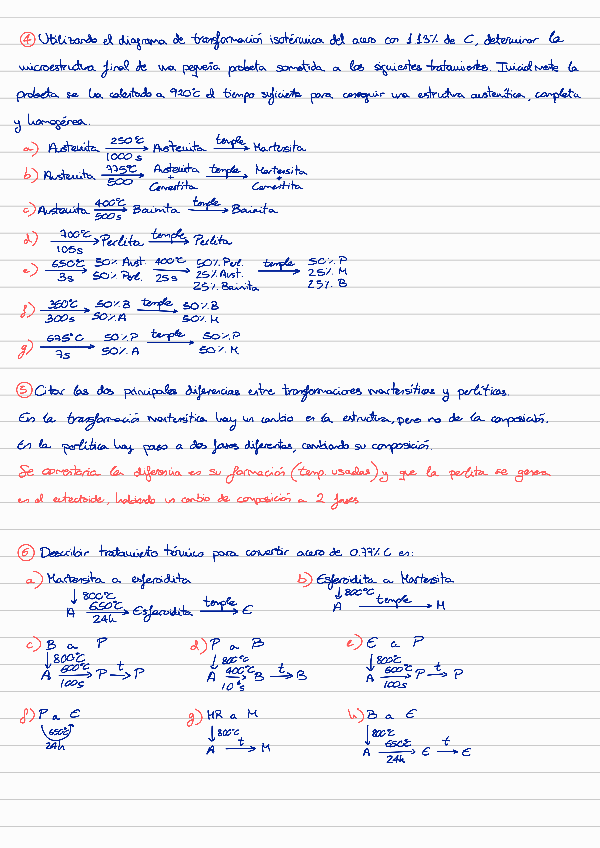 ④ Utilizando el diagrama de transformación isotérmica del acero con 1.13% de C, determinar la
microestructura final de una pequeña probeta sometida a los siguientes tratamientos. Inicialmente la
probeta se ha calentado a 920°C el tiempo suficiente para conseguir una estructura austenítica, completa
y homogénea.
a) Austenita 250°C 1000s → Austenita temple → Martensita
b) Austenita 775°C 500 → Austenita + Cementita temple → Martensita + Cementita
c) Austenita 400°C 500s → Bainita temple → Bainita
d) 700°C 105s → Perlita temple → Perlita
e) 650°C 3s → 50% Aust. 50% Perl. 400°C 25s → 50% Perl. 25% Aust. 25% Bainita temple → 50% P 25% M 25% B
f) 350°C 300s → 50% B 50% A temple → 50% B 50% M
g) 675°C 7s → 50% P 50% A temple → 50% P 50% M
⑤ Citar las dos principales diferencias entre transformaciones martensíticas y perlíticas.
En la transformación martensítica hay un cambio en la estructura, pero no de la composición.
En la perlítica hay paso a dos fases diferentes, cambiando su composición.
Se comentaría la diferencia en su formación (temp. usadas) y que la perlita se genera
en el eutectoide, habiendo un cambio de composición a 2 fases
⑥ Describir tratamiento térmico para convertir acero de 0.77% C en:
a) Martensita a esferoidita b) Esferoidita a Martensita
↓ 800°C ↓ 800°C
A 650°C 24h → Esferoidita temple → E A temple → M
c) B a P d) P a B e) E a P
↓ 800°C ↓ 800°C ↓ 800°C
A 600°C 100s → P t → P A 400°C → B t → B A 600°C 100s → P t → P
f) P a E g) MR a M h) B a E
650°C 24h ↓ 800°C ↓ 800°C
A t → M A 650°C 24h → E t → E